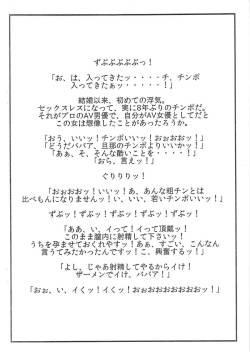 ずぷぷぷぷぷっ！
「お、は、入ってきたッ・・・・チ、チンポ
入ってきたぁッ・・・・・！」
結婚以来、初めての浮気。
セックスレスになって、実に8年ぶりのチンポだ。
それがプロのAV男優で、自分がAV女優としてだと
この女は想像したことがあったろうか。
「おう、いいッ！チンポいいッ！おぉおおッ！」
「どうだババア、旦那のチンポよりいいか！」
「あぁ、そ、そんな酷いことを・・・・！」
「おら、言えッ！」
ぐりりりッ！
「おぉおおッ！いいッ！あ、あんな粗チンとは
比べもんになりませんッ！い、いい、若いチンポいいッ！」
ずぷッ！ずぷッ！ずぷッ！ずぷッ！ずぷッ！
「ああ、い、イって！イって頂戴ッ！
このまま膣内に射精して下さいッ！
うちを孕ませておくれやすッ！あぁ、すごい、こんなん
言うてみたかったんですッ！興奮するッ！こ、興奮！」
「よし、じゃあ射精してやるからイけ！
ザーメンでイけ、ババア！」
「おぉ、い、イくッ！イくッ！おぉおおおおおおおッ！」